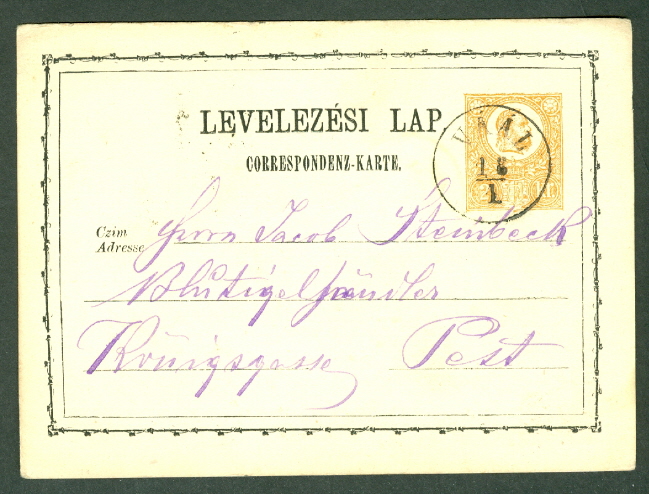 LEVELEZÉSI LAP.
CORRESPONDENZ-KARTE.
VAÁL
18
1.
Czim
Adresse
Herrn Jacob Steinbeck
Blutigelhändler
Königsgasse Pest